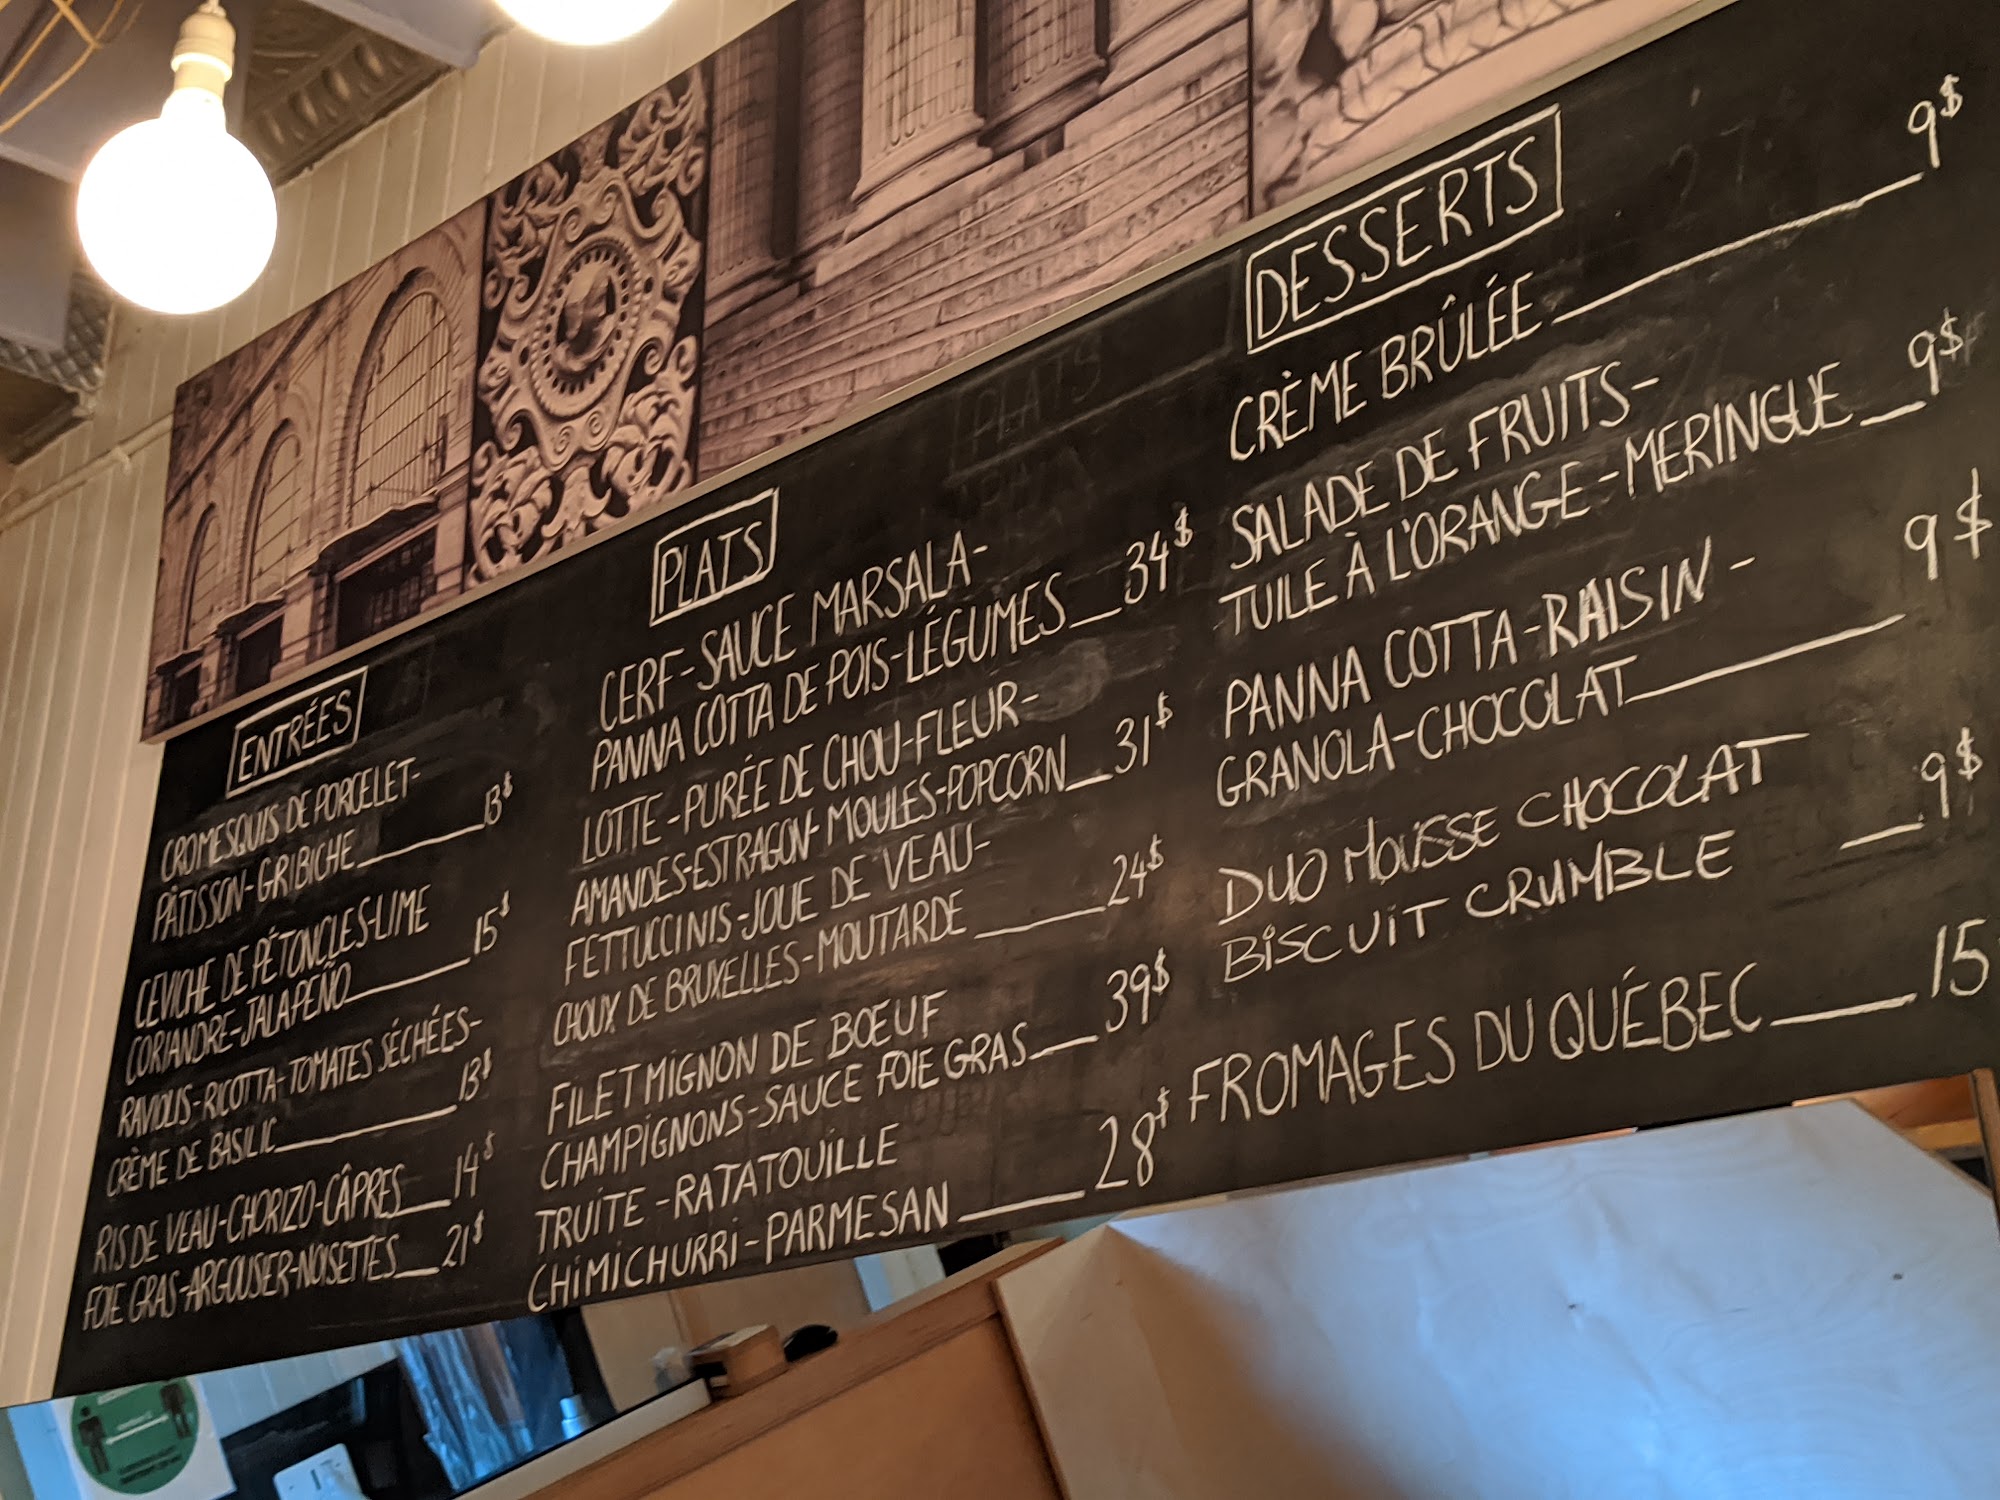 ENTRÉES
CROMESQUIS DE PORCELET-
PÂTISSON-GRIBICHE 13$
CEVICHE DE PÉTONCLES-LIME
CORIANDRE-JALAPEÑO 15$
RAVIOLIS-RICOTTA-TOMATES SÉCHÉES-
CRÈME DE BASILIC 13$
RIS DE VEAU-CHORIZO-CÂPRES 14$
FOIE GRAS-ARGOUSIER-NOISETTES 21$
PLATS
CERF-SAUCE MARSALA-
PANNA COTTA DE POIS-LÉGUMES 34$
LOTTE-PURÉE DE CHOU-FLEUR-
AMANDES-ESTRAGON-MOULES-POPCORN 31$
FETTUCCINIS-JOUE DE VEAU-
CHOUX DE BRUXELLES-MOUTARDE 24$
FILET MIGNON DE BŒUF
CHAMPIGNONS-SAUCE FOIE GRAS 39$
TRUITE-RATATOUILLE
CHIMICHURRI-PARMESAN 28$
DESSERTS
CRÈME BRÛLÉE 9$
SALADE DE FRUITS-
TUILE À L'ORANGE-MERINGUE 9$
PANNA COTTA-RAISIN-
GRANOLA-CHOCOLAT 9$
DUO MOUSSE CHOCOLAT
BISCUIT CRUMBLE 9$
FROMAGES DU QUÉBEC 15